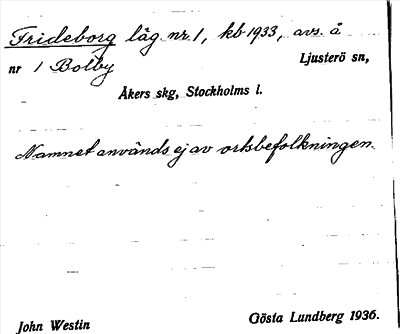 Frideborg läg. nr 1, kb 1933, avs. å
nr 1 Bolby Ljusterö sn,
Åkers skg, Stockholms l.
Namnet används ej av ortsbefolkningen.
John Westin Gösta Lundberg 1936.